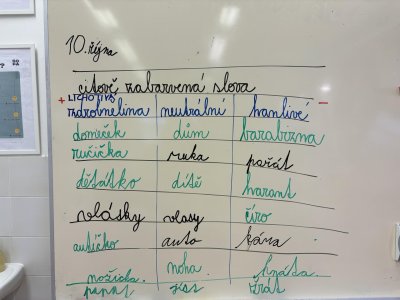 10. října
citově zabarvená slova
+ LICHOTIVÁ −
zdrobnělina neutrální hanlivé
domeček dům barabizna
ručička ruka pařát
děťátko dítě harant
vlásky vlasy číro
autíčko auto kára
nožička noha hnáta
papat jíst žrát